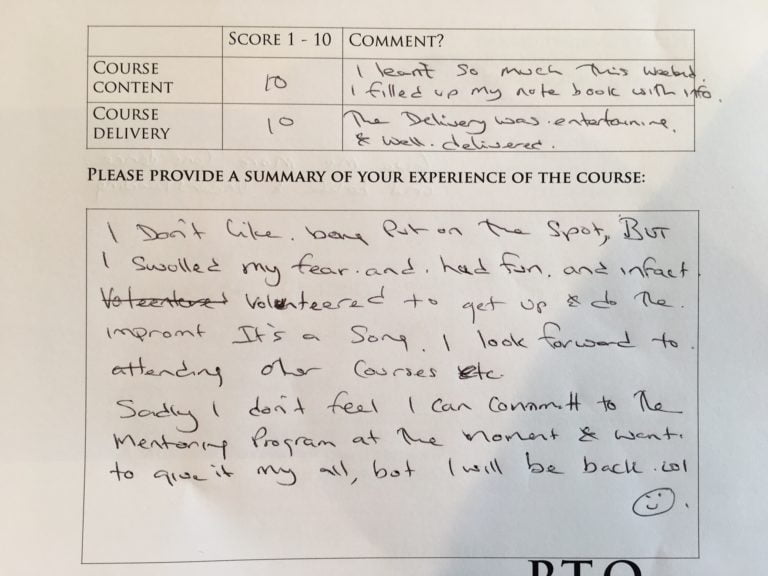 SCORE 1 - 10 COMMENT?
COURSE CONTENT 10 I leant so much this weekend.
I filled up my note book with info.
COURSE DELIVERY 10 The Delivery was entertaining,
& well delivered.
PLEASE PROVIDE A SUMMARY OF YOUR EXPERIENCE OF THE COURSE:
I Don't like being Put on the Spot, BUT
I Swolled my fear and had fun, and infact
Volunteered to get up & do the
impromt It's a Song. I look forward to
attending other Courses etc.
Sadly I don't feel I can Committ to the
Mentoring Program at the moment & want
to give it my all, but I will be back lol
PTO